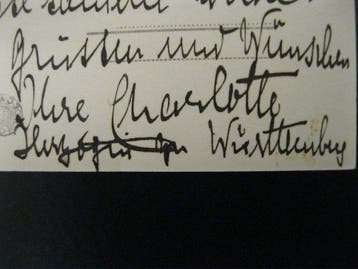 Grüssen und Wünschen
Ihre Charlotte
Herzogin zu Württemberg